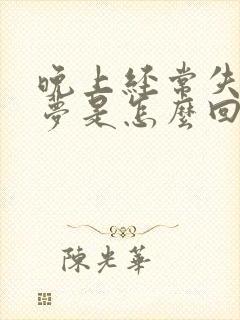 晚上經常失
夢是怎麼回
陳光華